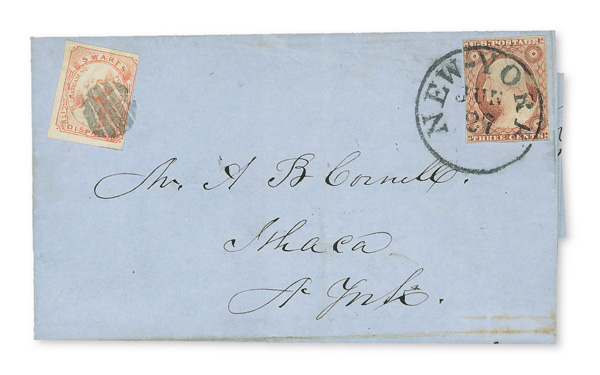 SWARTS
DESPA
U.S. POSTAGE
THREE CENTS
NEW-YORK
JUN
27
Mr. A B Cornell.
Ithaca
N York.